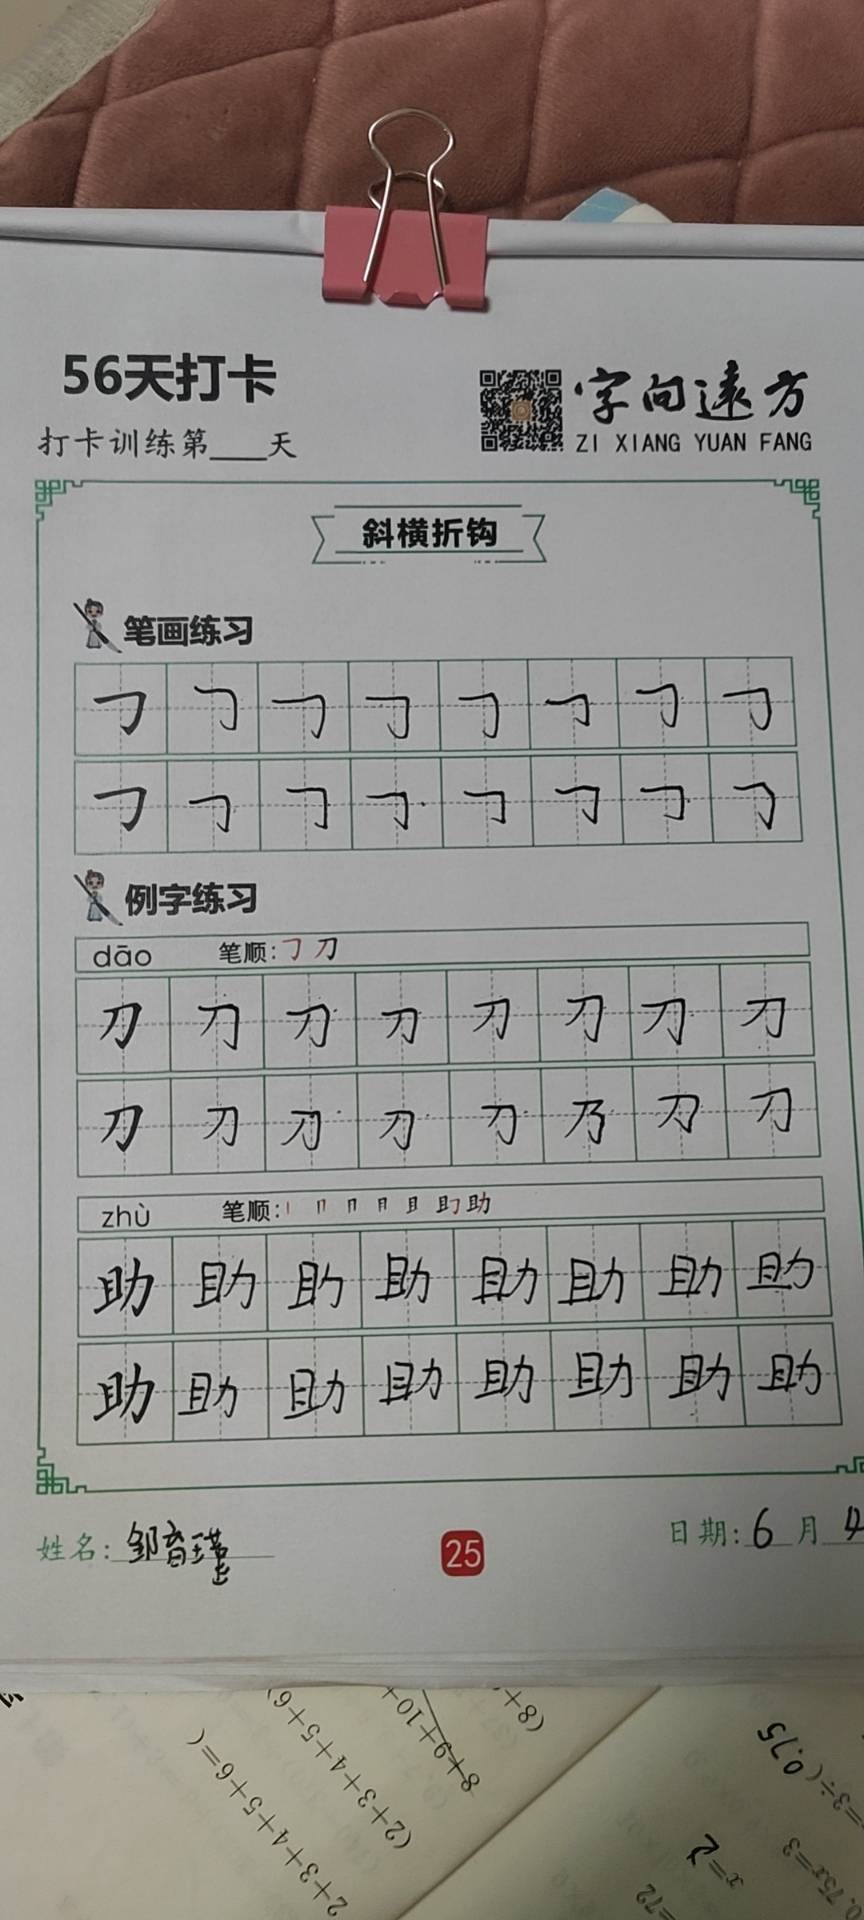 56天打卡
打卡训练第___天
字向遠方
ZI XIANG YUAN FANG
斜横折钩
笔画练习
㇆ ㇆ ㇆ ㇆ ㇆ ㇆ ㇆ ㇆
㇆ ㇆ ㇆ ㇆ ㇆ ㇆ ㇆ ㇆
例字练习
dāo 笔顺:㇆ 刀
刀 刀 刀 刀 刀 刀 刀 刀
刀 刀 刀 刀 刀 乃 刀 刀
zhù 笔顺:
助 助 助 助 助 助 助 助
助 助 助 助 助 助 助 助
姓名:邹育瑾
25
日期:6月4
8+9+10+
(8+
(2+3+4+5+6)
2+3+4+5+6=(
=3÷(0.75
0.75x=3
x=2
=72